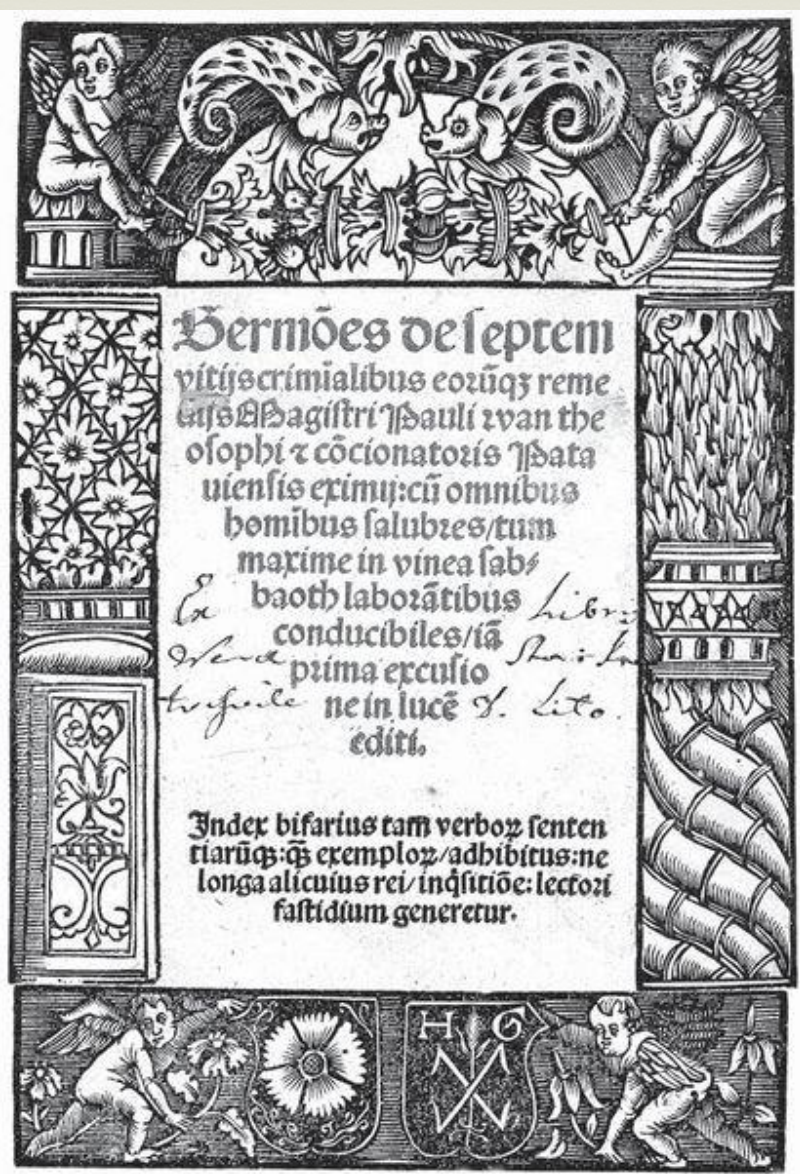 Sermões de septem
vitijs crimīalibus eorūqꝫ reme
dijs Magistri Pauli wan the
osophi ⁊ cōcionatoris Pata
uiensis eximij: cū omnibus
homībus salubres/tum
maxime in vinea sab⸗
baoth laborātibus
Ex Libris
conducibiles/iā
prima excusio
ne in lucē
editi.
Index bifarius tam verboꝝ senten
tiarūqꝫ: qꝫ̄ exemploꝝ/adhibitus: ne
longa alicuius rei/inq̇sitiōe: lectori
fastidium generetur.
H G